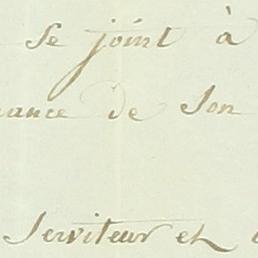 se joint à
ance de Son
Serviteur et